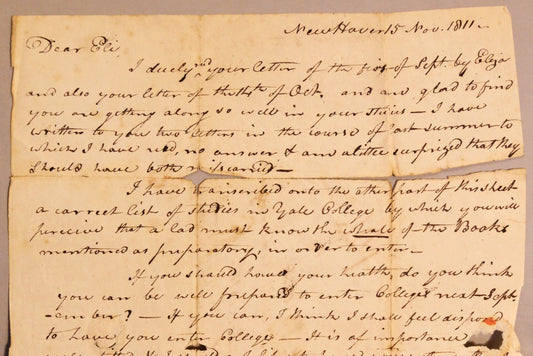 New Haven 15 Nov. 1811 -
Dear Eli,
I duely recd your letter of the first of Sept. by Eliza
and also your letter of the 11th of Oct. and am glad to find
you are getting along so well in your studies - I have
written to you two letters in the course of last summer to
which I have recd. no answer & am a little surprized that they
should have both miscarried -
I have transcribed onto the other part of this sheet
a correct list of studies in Yale College by which you will
perceive that a lad must know the whole of the Books
mentioned as preparatory, in order to enter -
If you should have your health, do you think
you can be well prepared to enter College next Sept-
-ember? - If you can, I think I shall feel disposed
to have you enter College - It is of importance